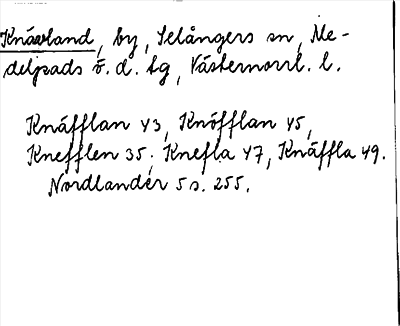 Knävland, by, Selångers sn, Me-
delpads ö. d. tg, Västernorrl. l.
Knäfflan 43, Knöfflan 45,
Knefflen 35; Knefla 47, Knäffla 49.
Nordlander 5 s. 255.